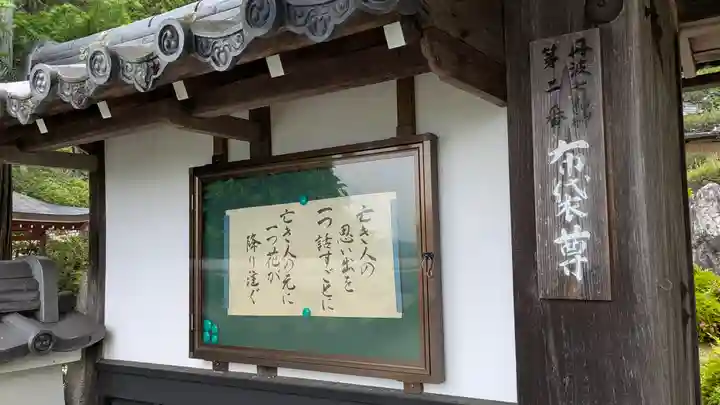 丹波七福
第二番
布袋尊
亡き人の
思い出を
一つ話すごとに
亡き人の元に
一つ花が
降り注ぐ